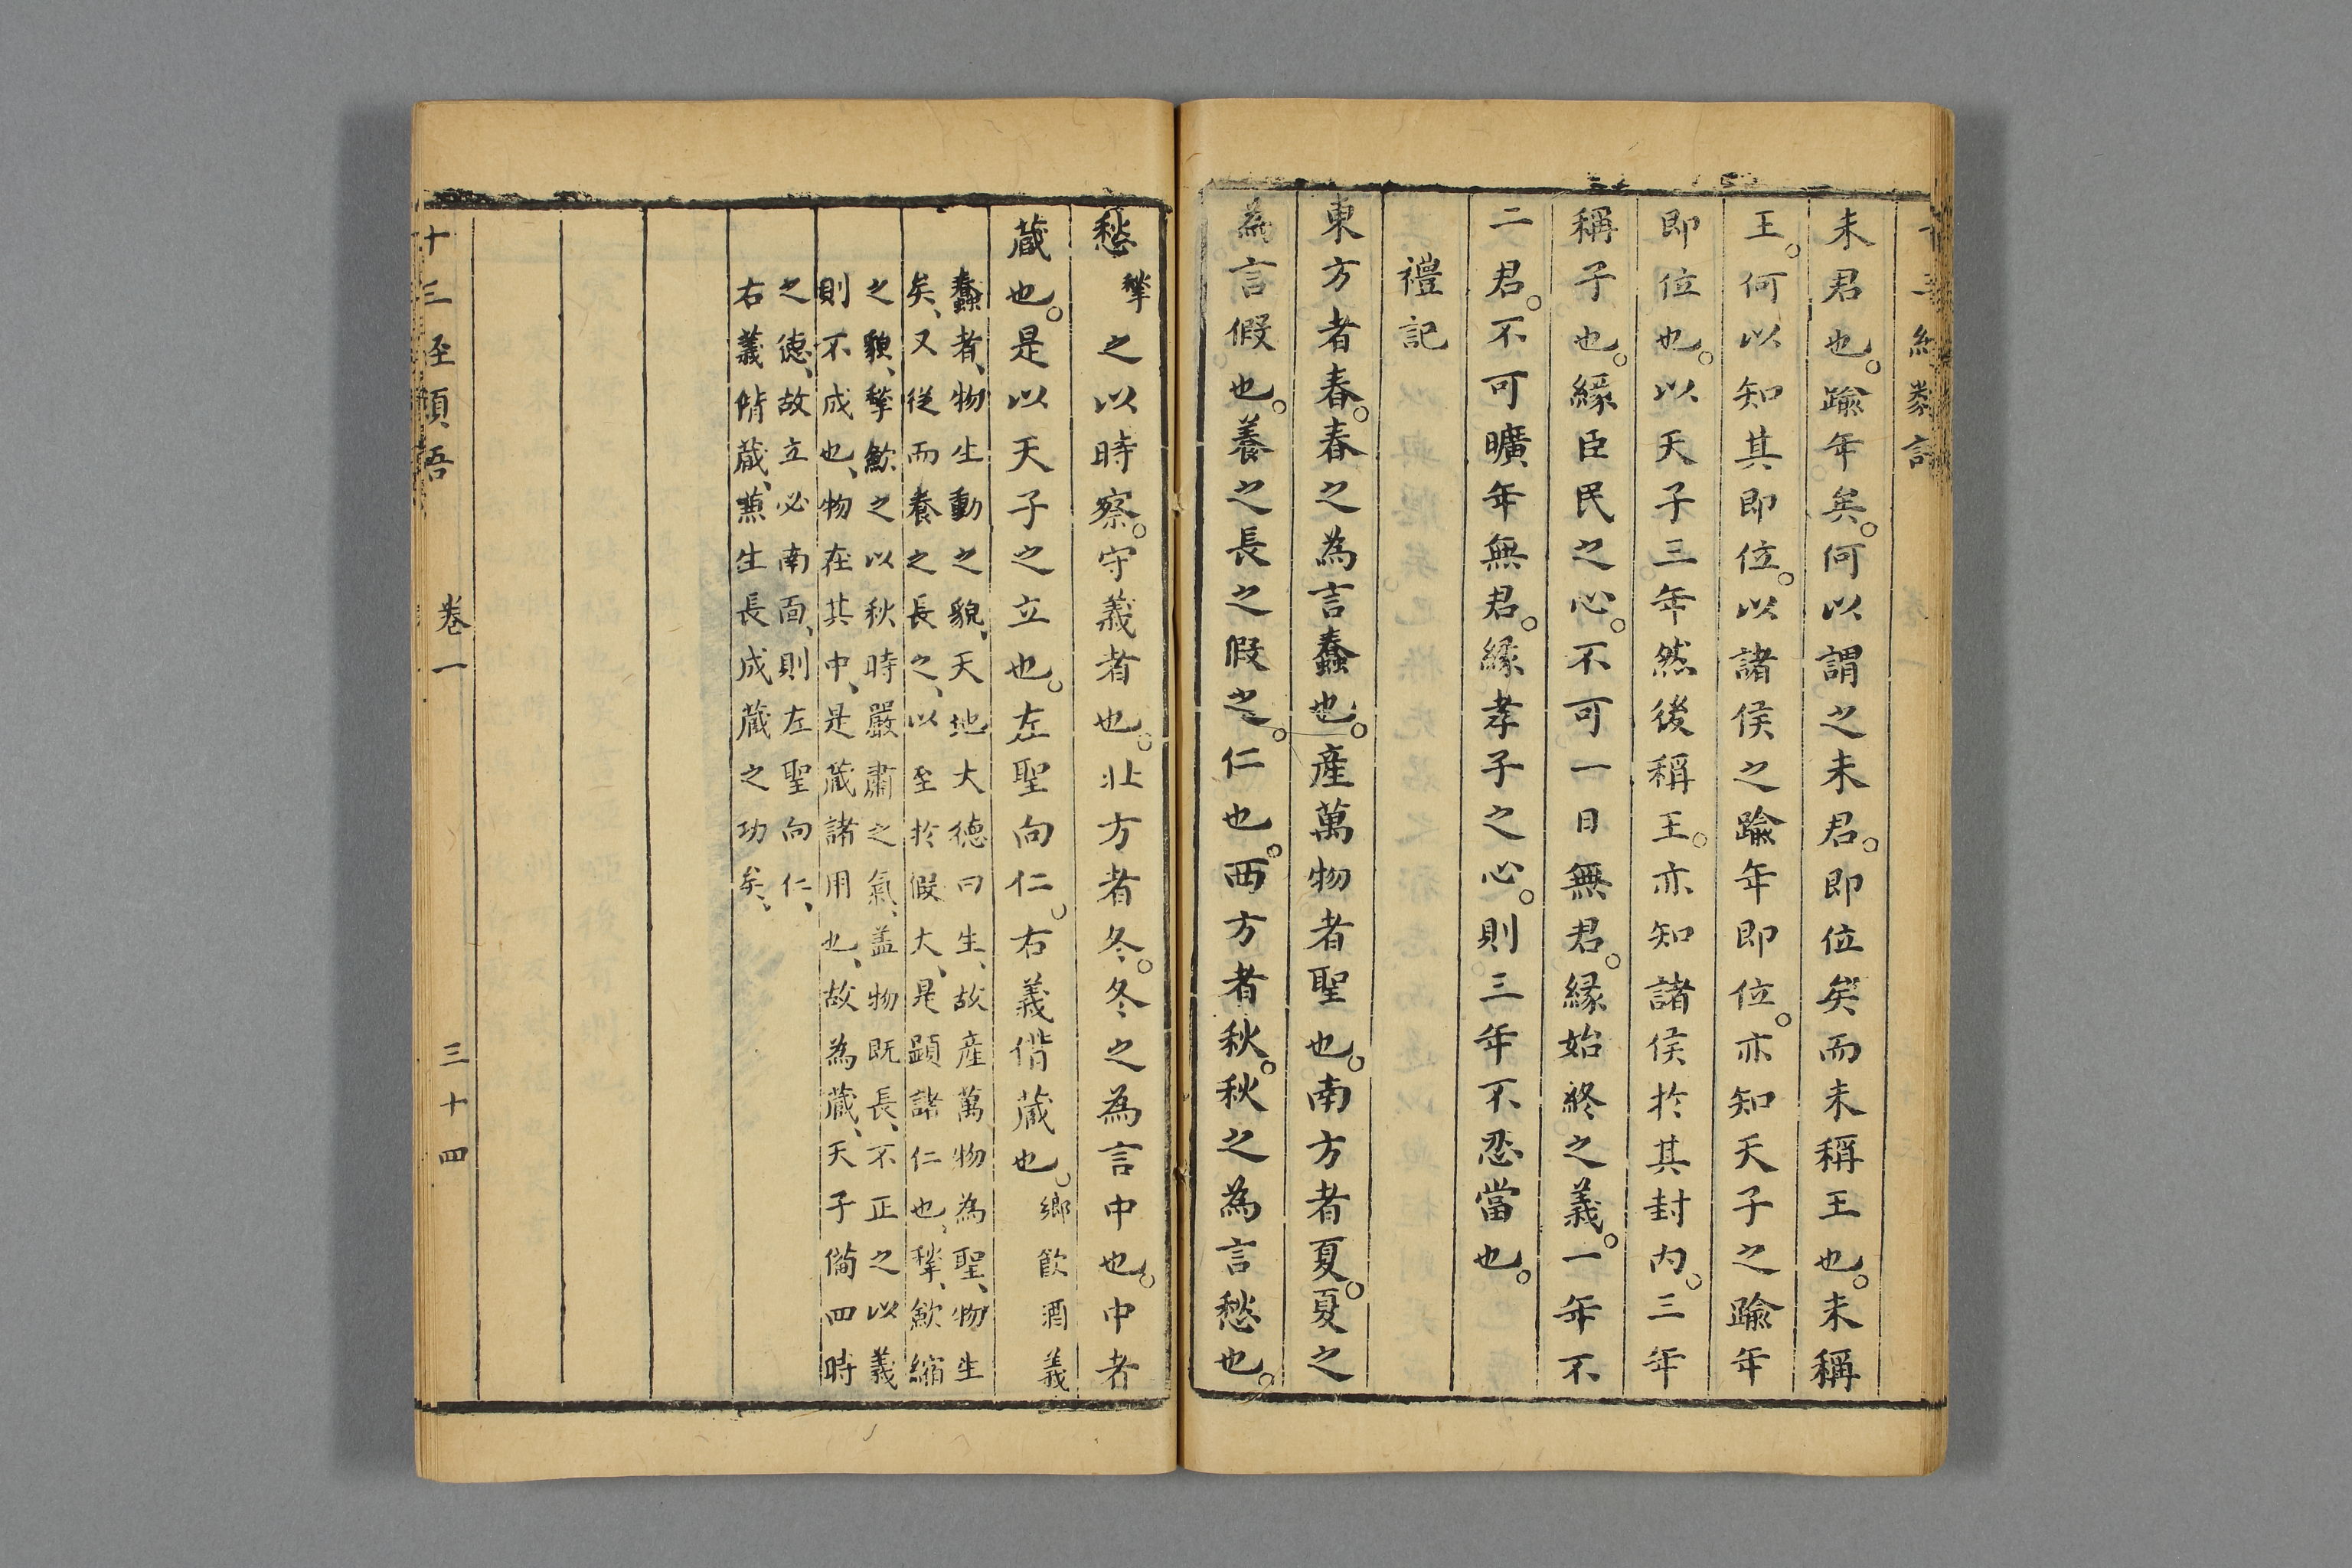 未君也。踰年矣。何以謂之未君。即位矣而未稱王也。未稱
王。何以知其即位。以諸侯之踰年即位。亦知天子之踰年
即位也。以天子三年然後稱王。亦知諸侯於其封内。三年
稱子也。緣臣民之心。不可一日無君。緣始終之義。一年不
二君。不可曠年無君。緣孝子之心。則三年不忍當也。
禮記
東方者春。春之為言蠢也。産萬物者聖也。南方者夏。夏之
為言假也。養之長之假之。仁也。西方者秋。秋之為言愁也。
愁揫之以時察。守義者也。北方者冬。冬之為言中也。中者
蔵也。是以天子之立也。左聖向仁。右義偝蔵也。鄉飲酒義
蠢者、物生動之貌、天地大徳曰生、故産萬物為聖、物生
矣、又從而養之長之、以至於假大、是顕諸仁也、揫、歛縮
之貌、揫歛之以秋時嚴肅之氣、盖物既長、不正之以義
則不成也、物在其中、是蔵諸用也、故為蔵、天子偹四時
之徳、故立必南面、則左聖向仁、
右義偝蔵、蕙生長成蔵之功矣、
十三經類語
卷一
三十四